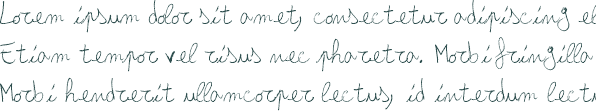 Lorem ipsum dolor sit amet, consectetur adipiscing el
Etiam tempor vel risus nec pharetra. Morbi fringilla
Morbi hendrerit ullamcorper lectus, id interdum lectu